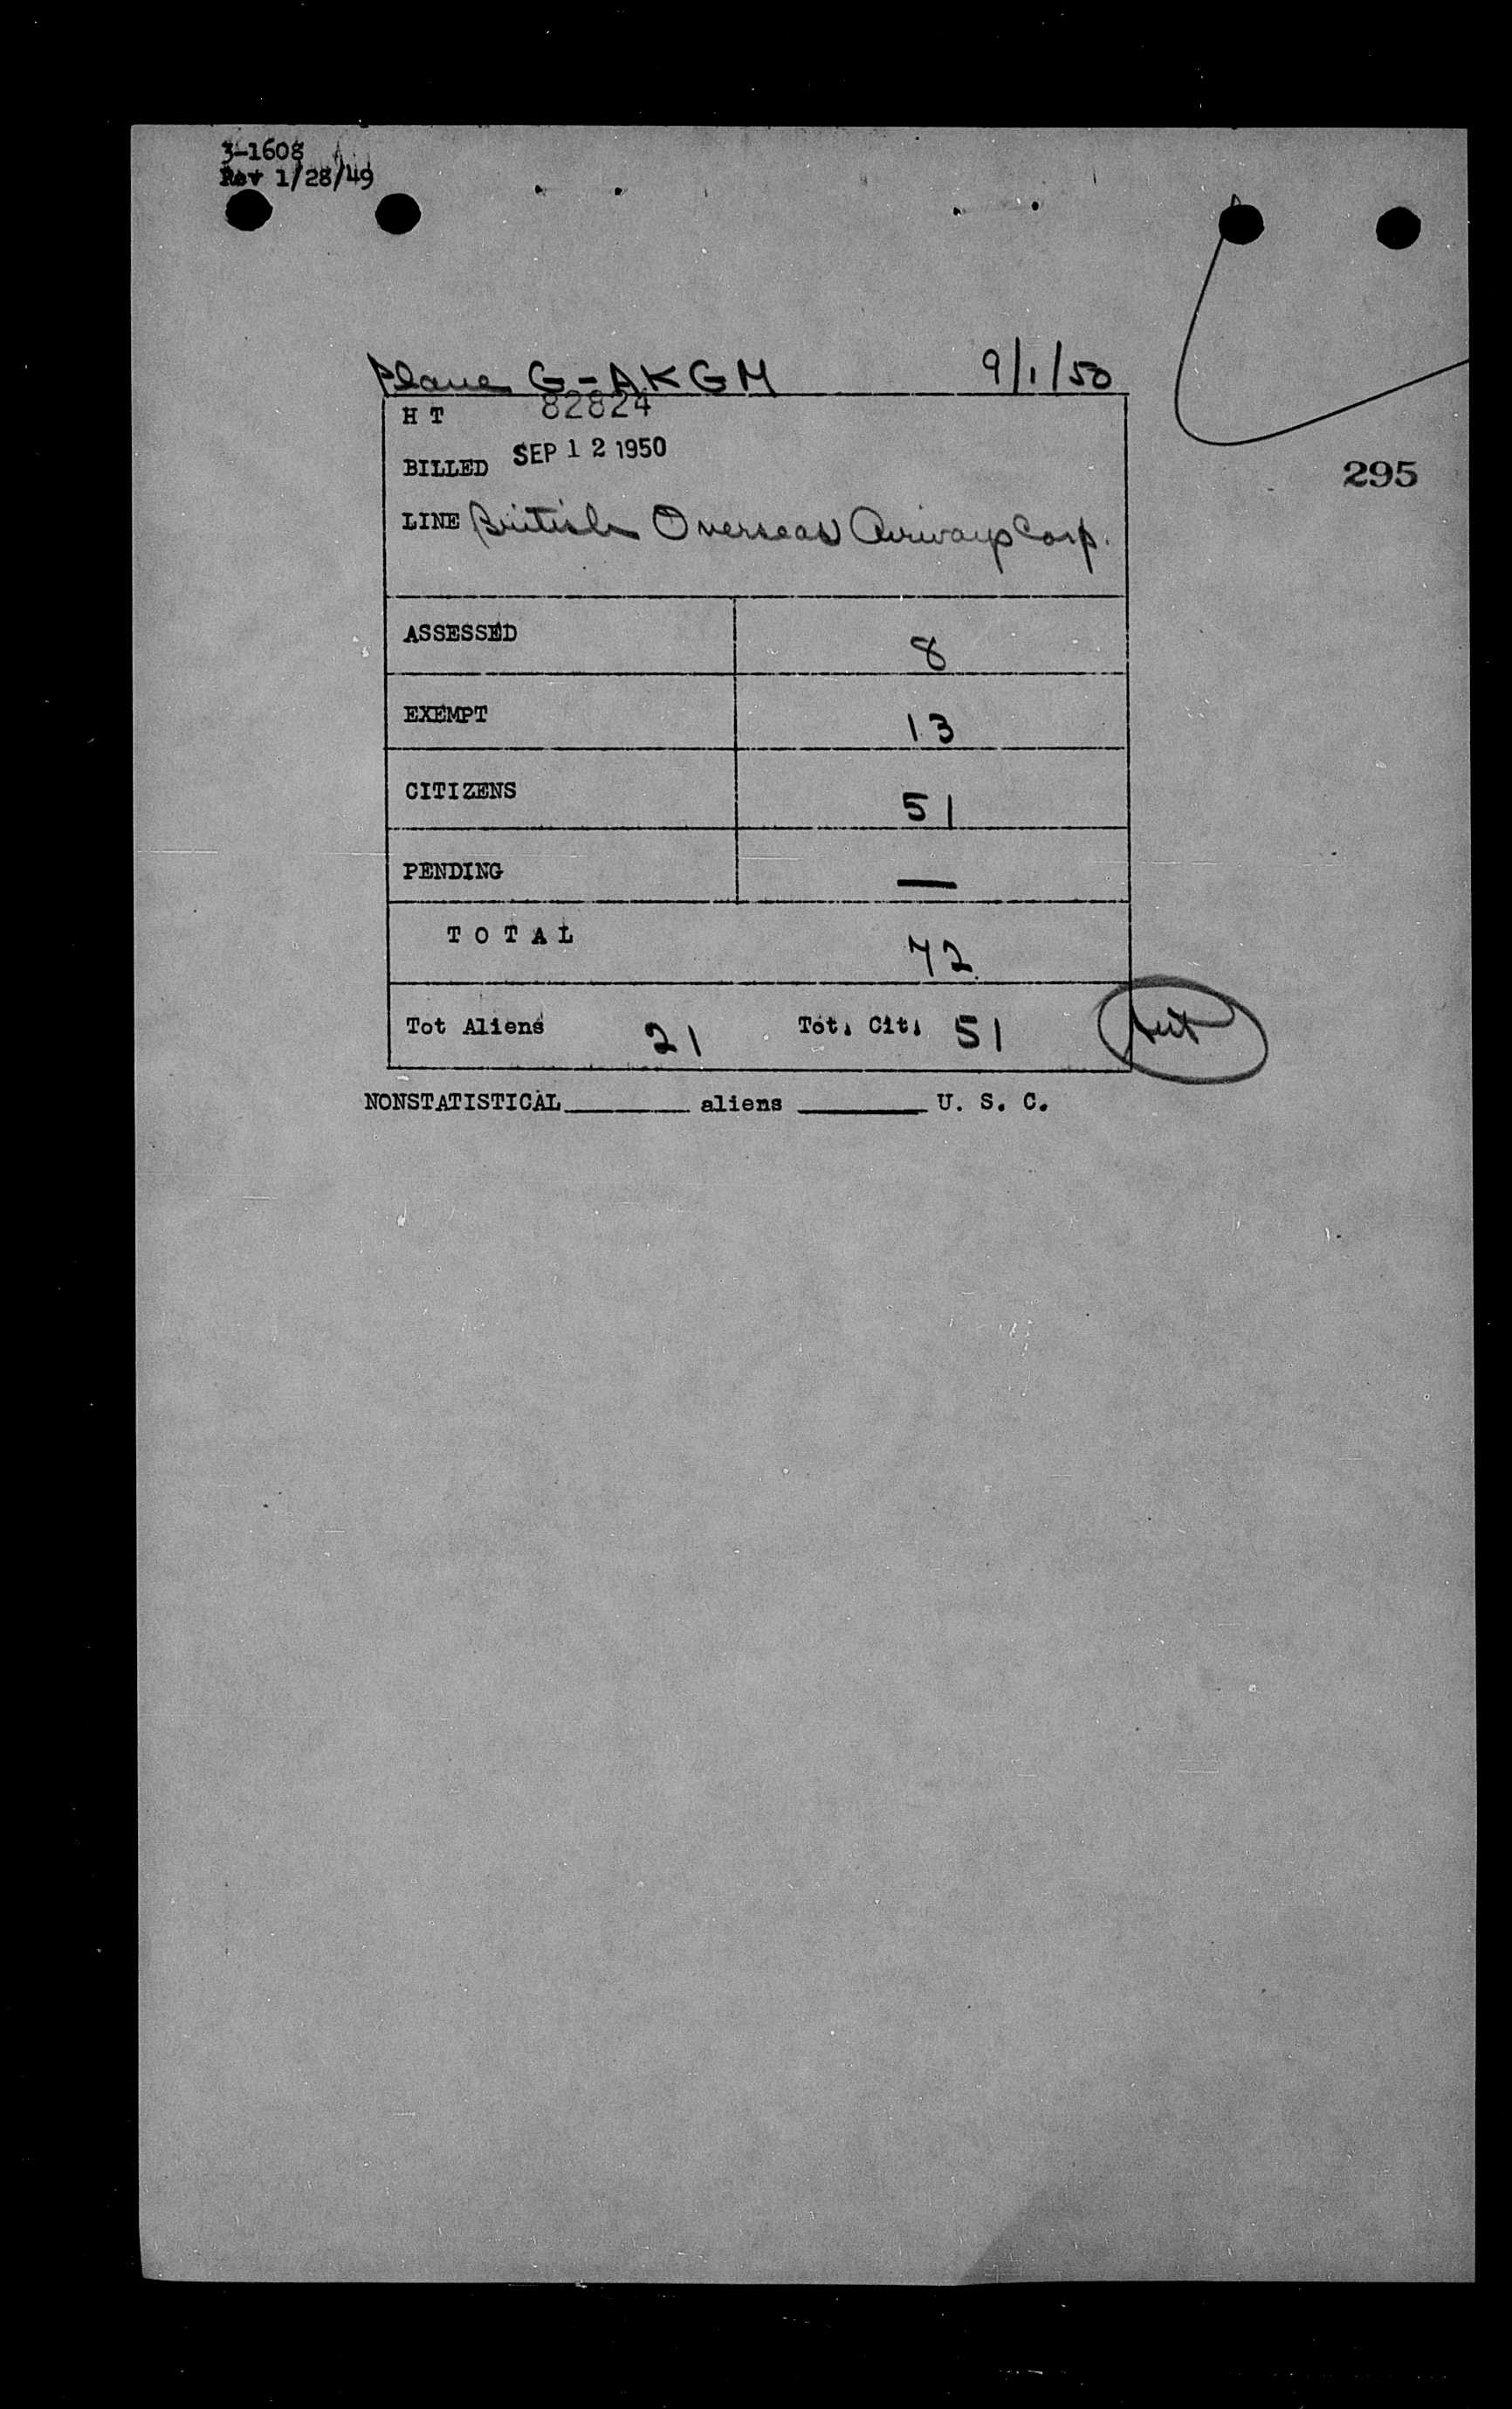 3-1608
Rev 1/28/49
Plane G-AKGM 9/1/50
H T 82824
BILLED SEP 12 1950
295
LINE British Overseas Airways Corp.
ASSESSED 8
EXEMPT 13
CITIZENS 51
PENDING —
T O T A L 72
Tot Aliens 21 Tot. Cit. 51
NONSTATISTICAL_______ aliens _______ U. S. C.